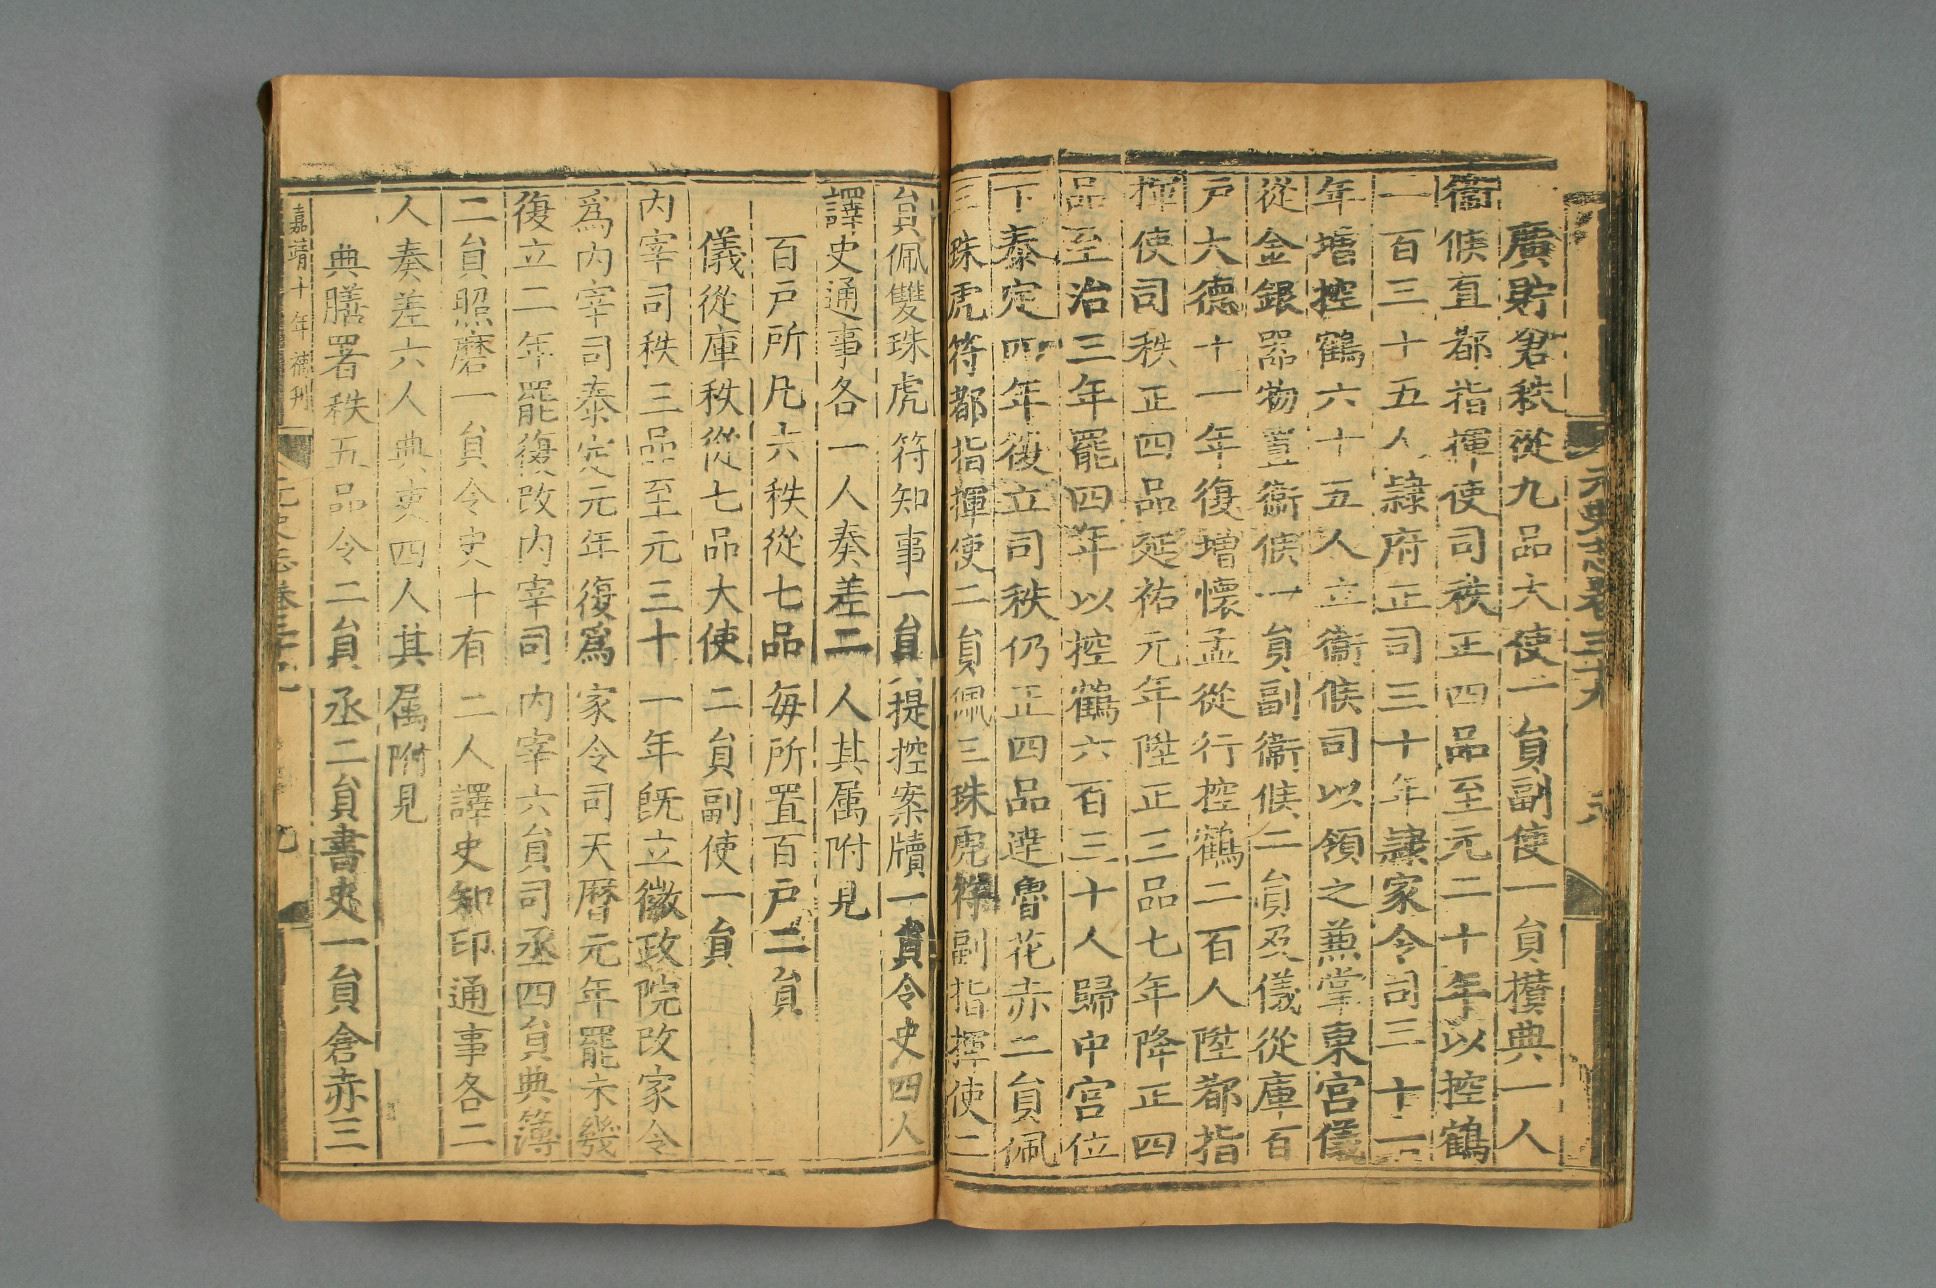 元史志卷三十九 八
廣貯倉秩從九品大使一員副使一員攢典一人
衞候直都指揮使司秩正四品至元二十年以控鶴
一百三十五人隸府正司三十年隸家令司三十一
年增控鶴六十五人立衞候司以領之兼掌東宮儀
從金銀器物置衞候一員副衞候二員及儀從庫百
戶大德十一年復增懷孟從行控鶴二百人陞都指
揮使司秩正四品延祐元年陞正三品七年降正四
品至治三年罷四年以控鶴六百三十人歸中宮位
下泰定四年復立司秩仍正四品達魯花赤二員佩
三珠虎符都指揮使二員佩三珠虎符副指揮使二
員佩雙珠虎符知事一員提控案牘一員令史四人
譯史通事各一人奏差二人其属附見
百戶所凡六秩從七品每所置百戶二員
儀從庫秩從七品大使二員副使一員
内宰司秩三品至元三十一年旣立徽政院改家令
爲内宰司泰定元年復爲家令司天曆元年罷未幾
復立二年罷復改内宰司内宰六員司丞四員典簿
二員照磨一員令史十有二人譯史知印通事各二
人奏差六人典吏四人其属附見
典膳署秩五品令二員丞二員書史一員倉赤三
嘉靖十年補刊 元史志卷三十九 九